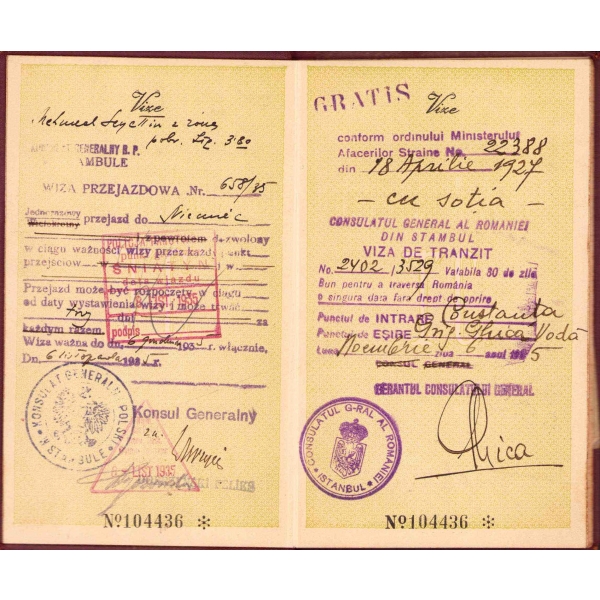 Vize
Mehmed Seyffin z żoną
pobr. Liz. 3.80
KONSULAT GENERALNY R. P.
STAMBULE
WIZA PRZEJAZDOWA Nr. 658/35
Jednorazowy
Wielokrotny przejazd do Niemiec
i z powrotem dozwolony
w ciągu ważności wizy przez każdy punkt
przejściowy
Przejazd może być rozpoczęty w ciągu
od daty wystawienia wizy i może trwać
trzy dni za
każdym razem.
Wiza ważna do dn. 6 grudnia 1935 r. włącznie.
Dn. 6 listopada 1935 r.
podpis
KONSULAT GENERALNY POLSKI
STAMBULE
Konsul Generalny
za.
LIST 1935
No 104436 *
GRATIS
Vize
conform ordinului Ministerului
Afacerilor Straine No. 22388
din 18 Aprilie 1927
- cu soția -
CONSULATUL GENERAL AL ROMANIEI
DIN STAMBUL
VIZA DE TRANZIT
No. 2402/3529 Valabila 30 de zile
Bun pentru a traversa România
o singura data fara drept de oprire
Punctul de INTRARE Constanta
Punctul de EȘIRE Grig. Ghica Vodă
Luna Noembrie ziua 6 anul 1935
CONSUL GENERAL
GERANTUL CONSULATULUI GENERAL
CONSULATUL G-RAL AL ROMANIEI
* ISTANBUL *
Ghica
No 104436 *